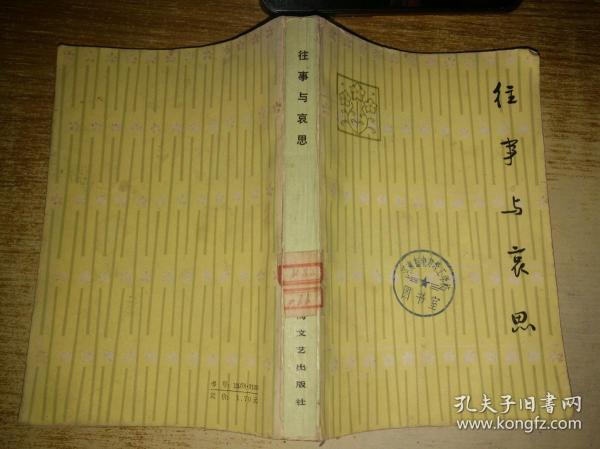 往事与哀思
往事与哀思
文艺出版社
书号：
定价：1.70元
孔夫子旧书网
www.kongfz.com